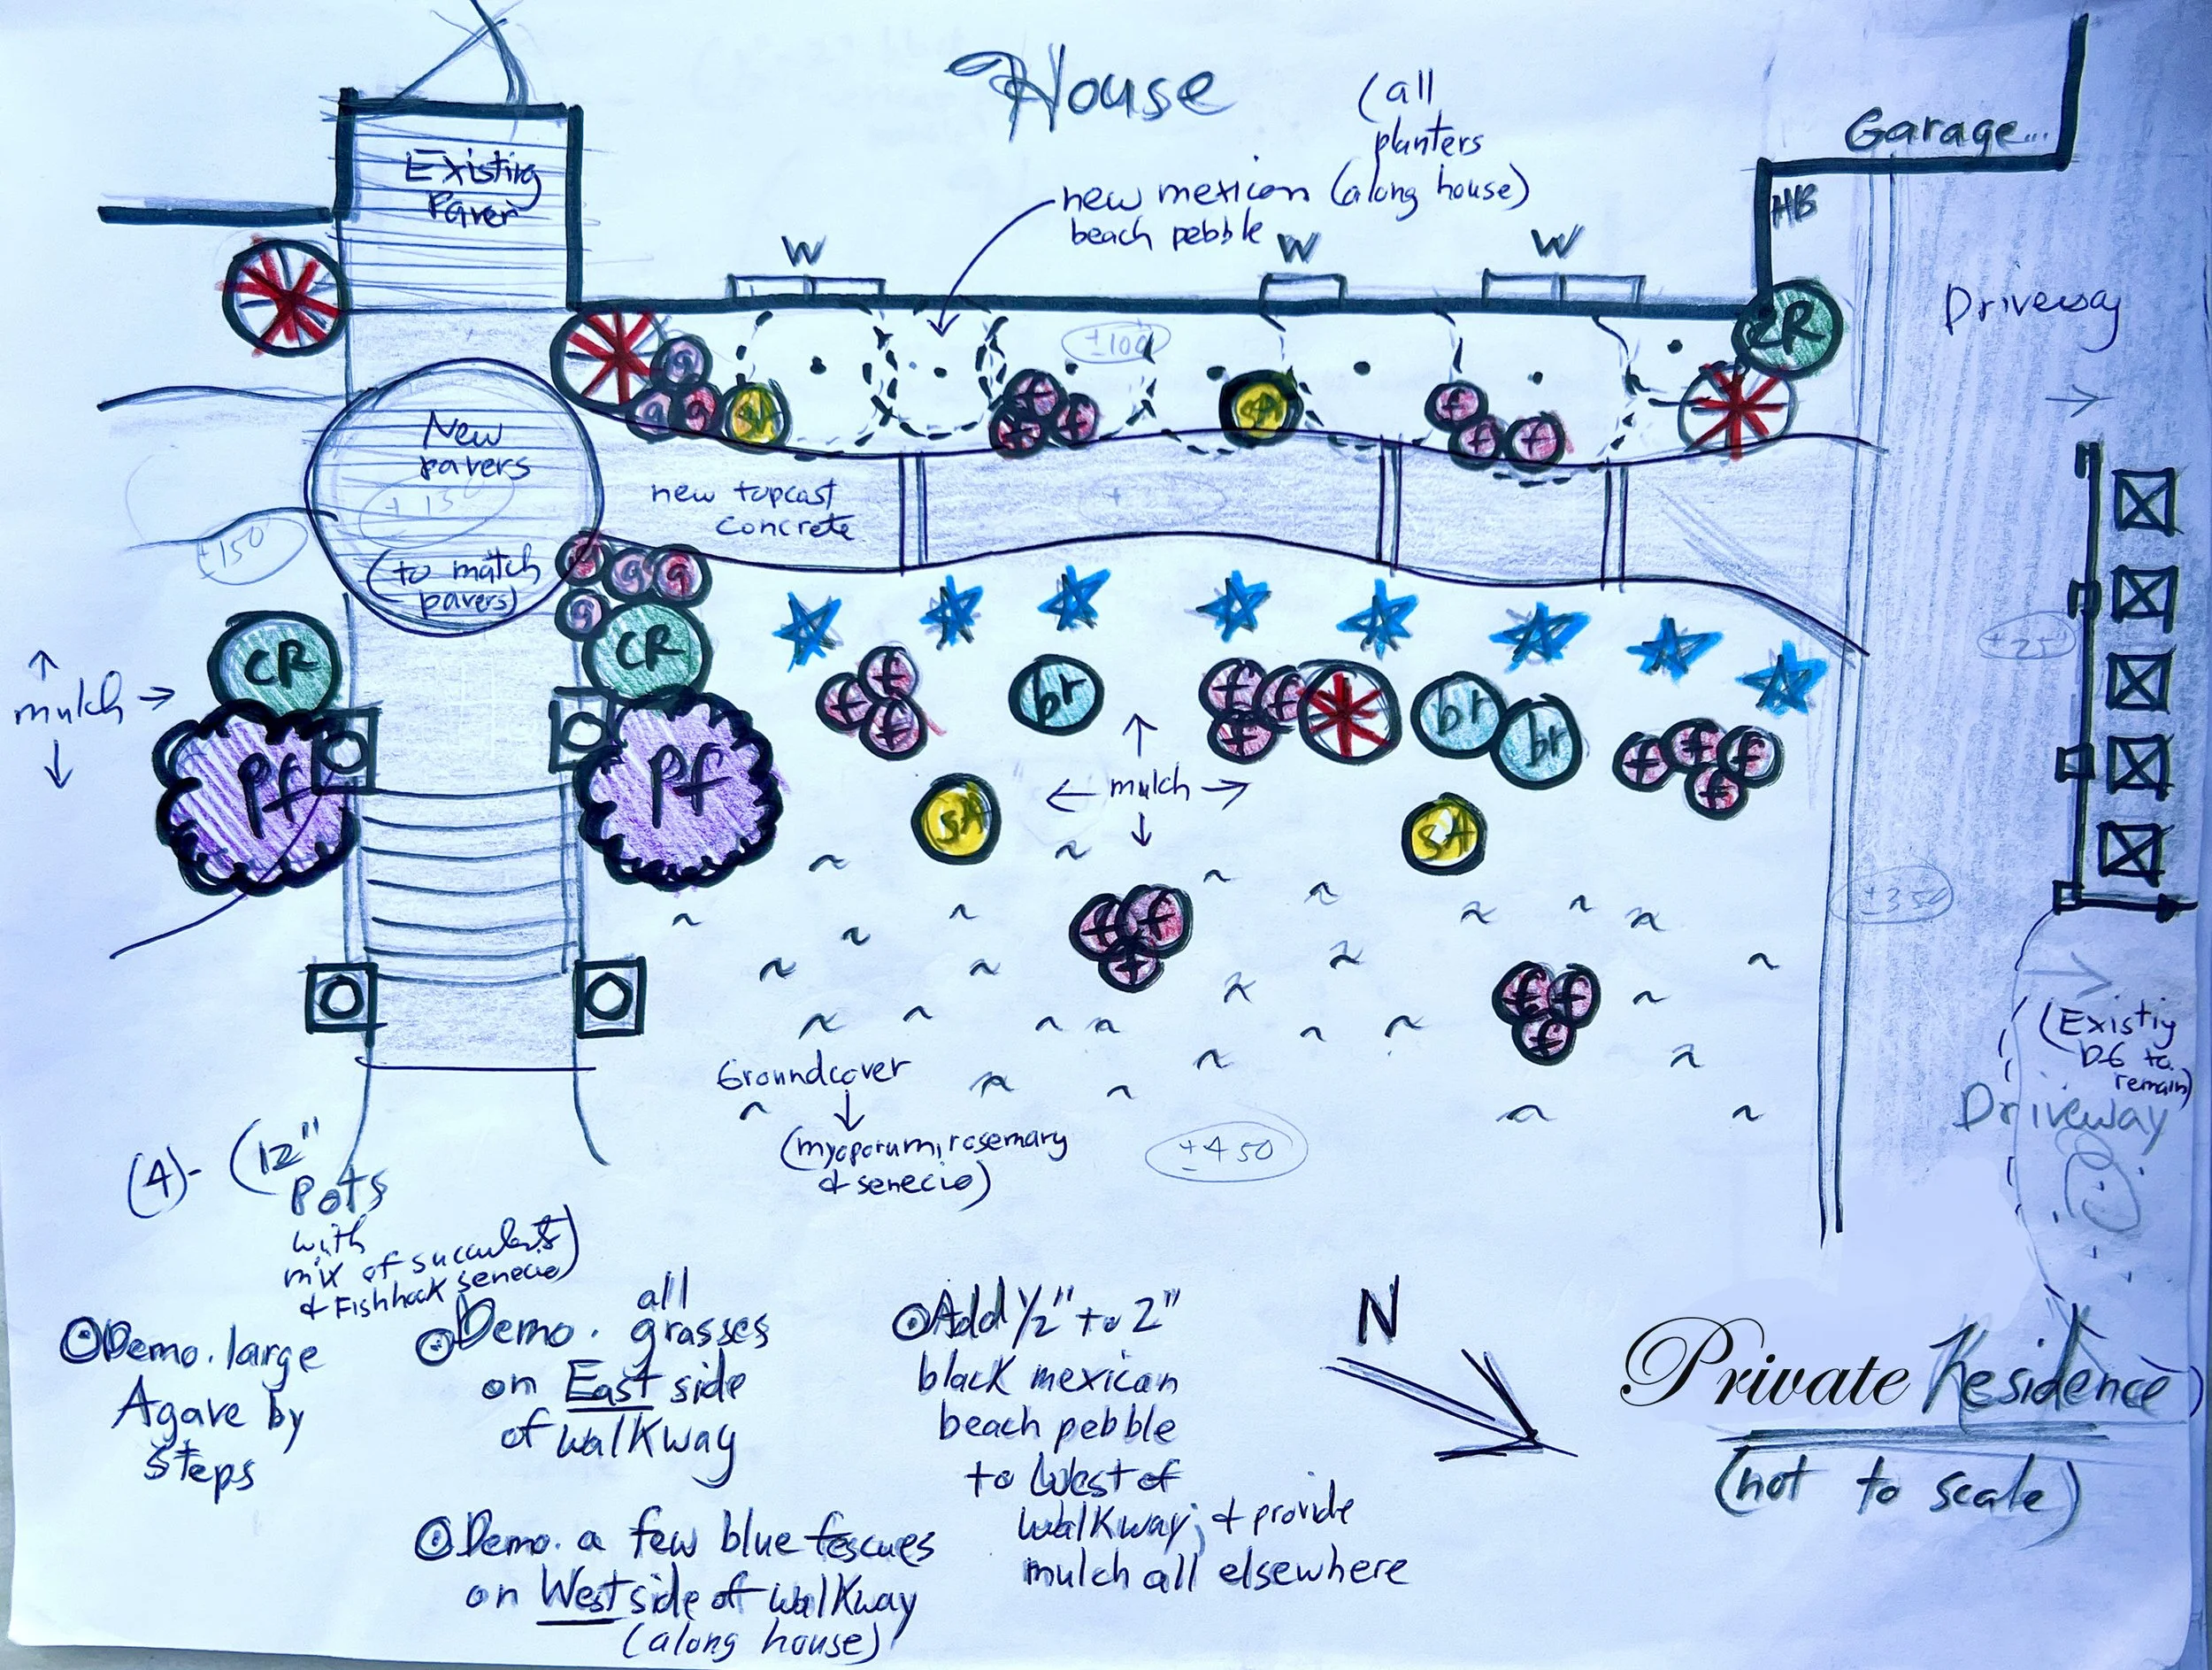 House
(all
planters
(along house)
new mexican
beach pebble
Garage...
HB
Existing
Paver
W
W
W
Driveway
±100
CR
g
g
g
SA
f
f
f
SA
f
f
f
New
pavers
±15
(to match
pavers)
new topcast
concrete
±150
g
g
g
g
CR
CR
±25
↑
mulch →
↓
pf
pf
f
f
f
br
f
f
f
br
br
f
f
f
f
↑
← mulch →
↓
SA
SA
±350
f
f
f
f
f
f
(Existig
DG to
remain)
Driveway
Groundcover
(myoporum, rosemary
& senecio)
±450
(4)- (12"
Pots
with
mix of succulents)
& Fishhook senecio
⊙Demo. large
Agave by
steps
⊙Demo. all
grasses
on East side
of walkway
⊙Demo. a few blue fescues
on West side of walkway
(along house)
⊙Add 1/2" to 2"
black mexican
beach pebble
to West of
walkway; & provide
mulch all elsewhere
N
Private Residence
(not to scale)